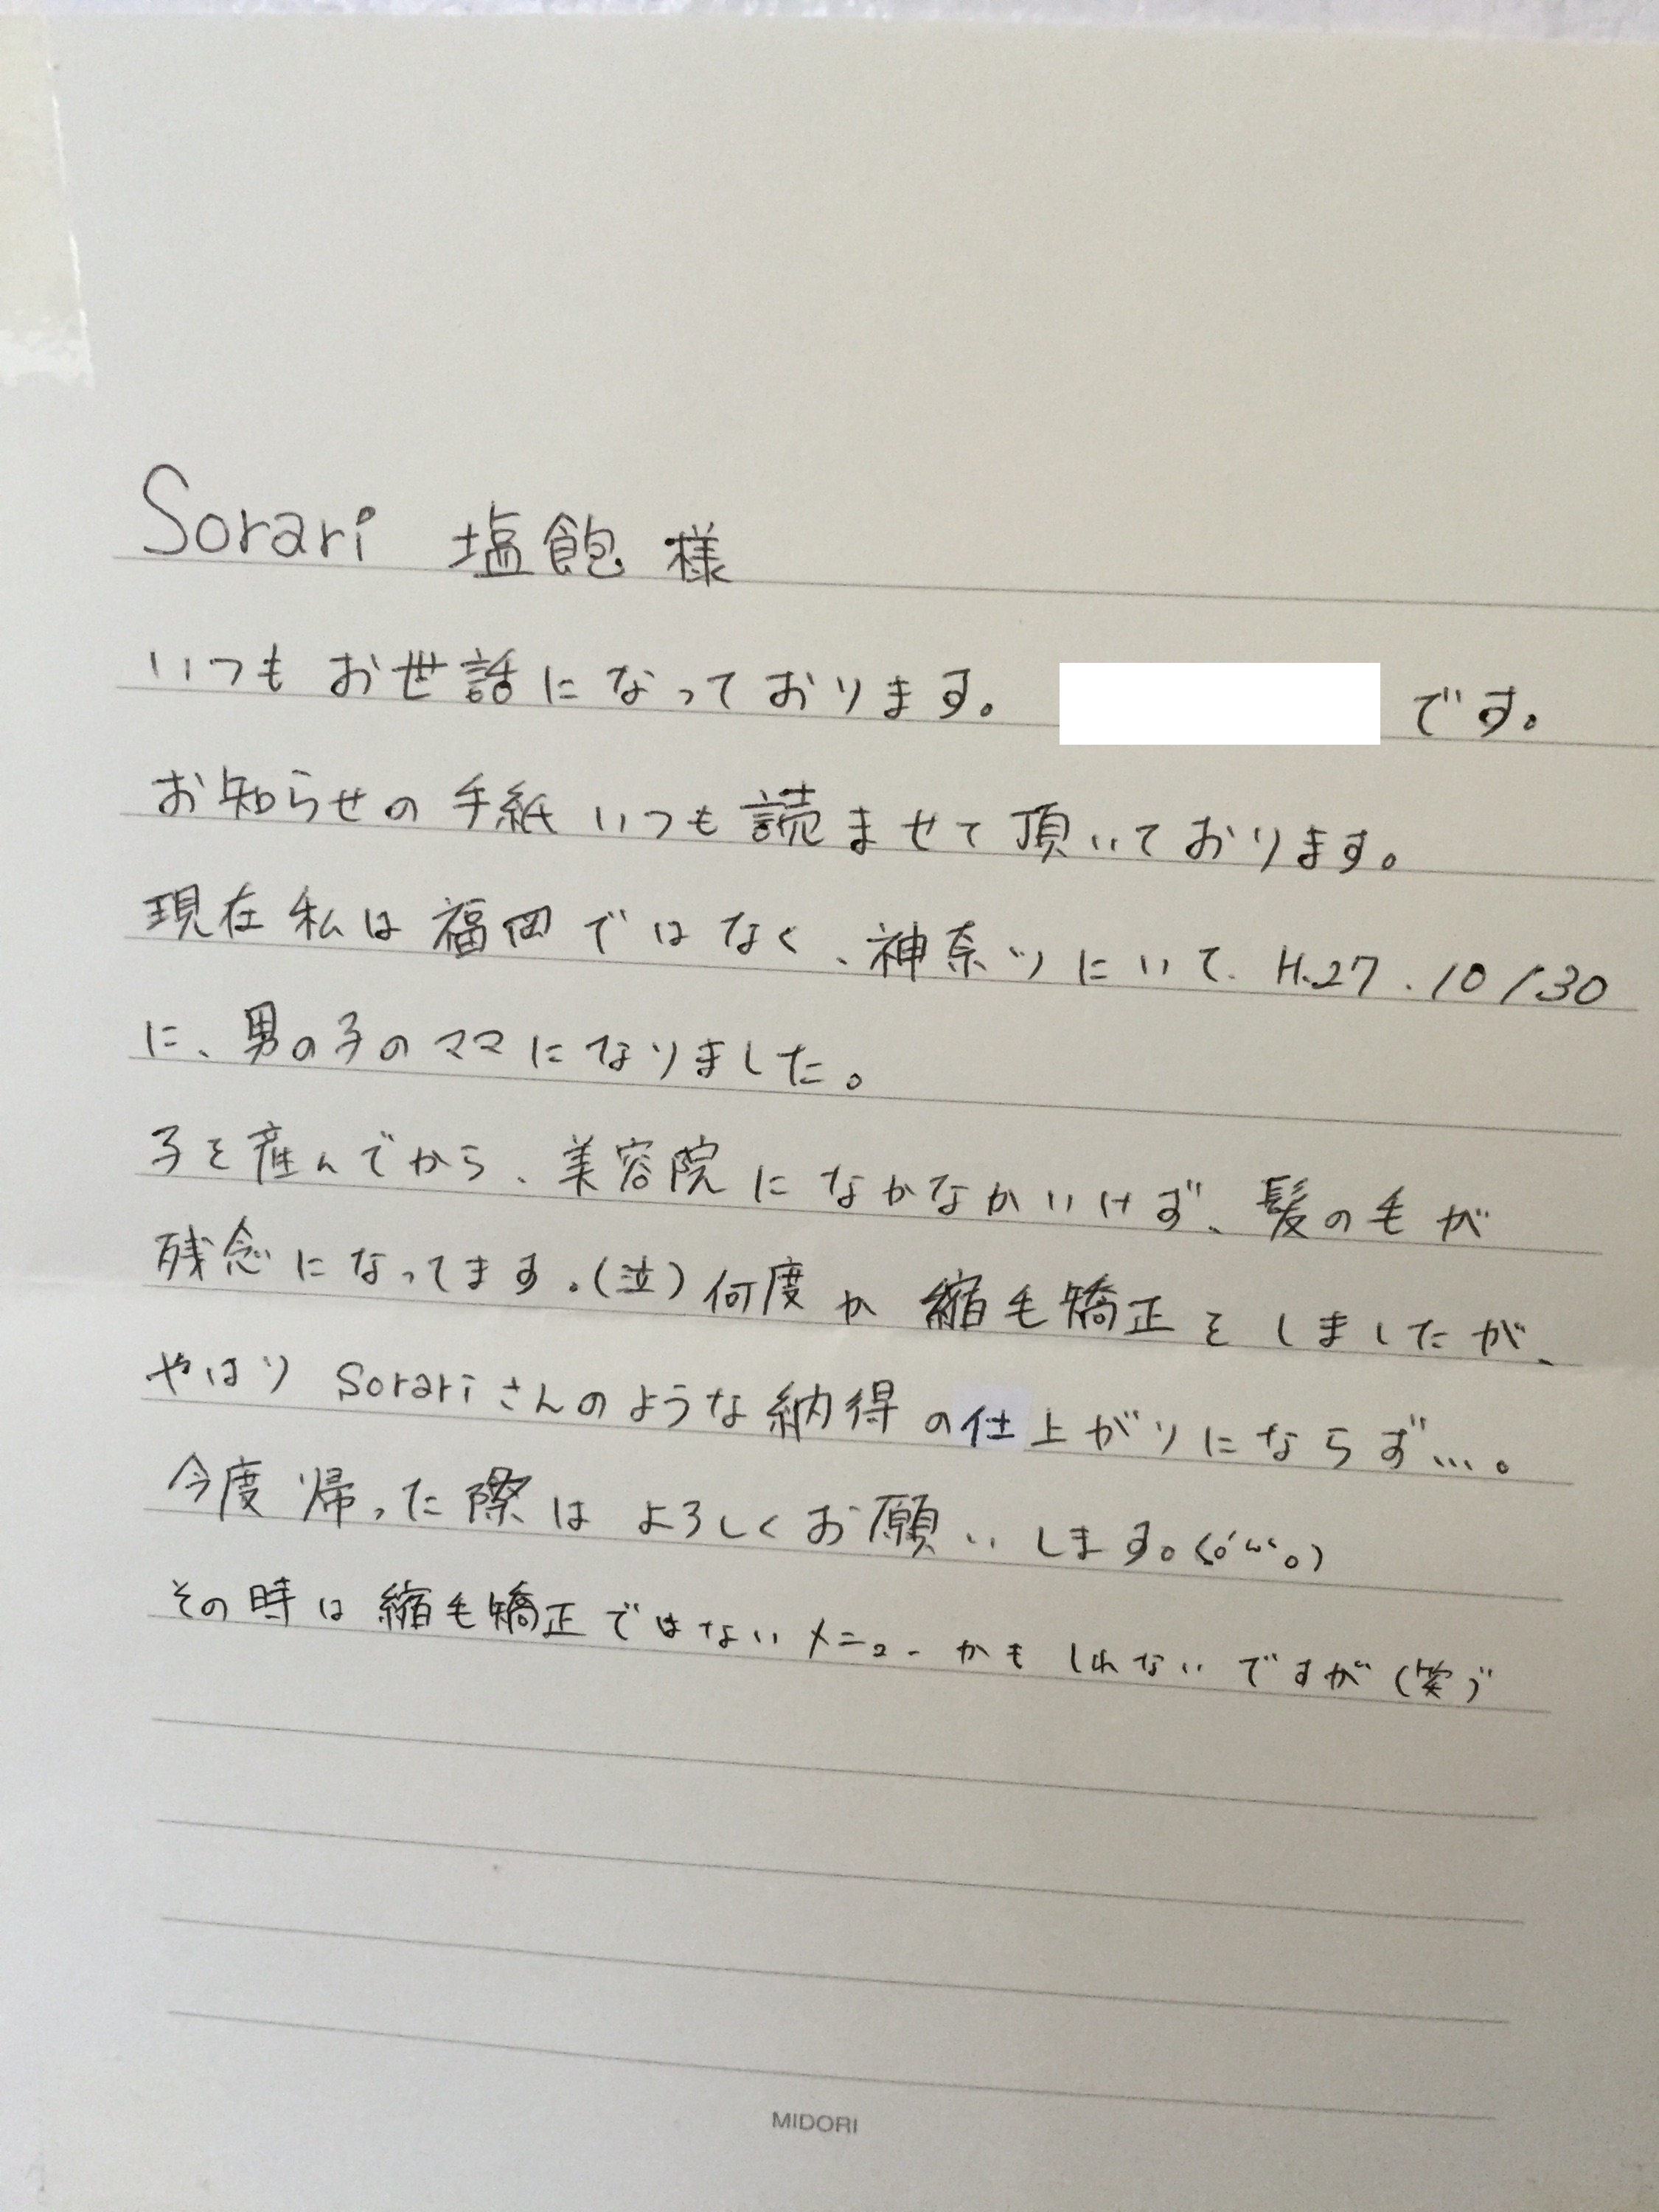 Sorari 塩飽 様
いつもお世話になっております。 です。
お知らせの手紙いつも読ませて頂いております。
現在私は福岡ではなく、神奈川にいて、H.27.10/30
に、男の子のママになりました。
子を産んでから、美容院になかなかいけず、髪の毛が
残念になってます。(泣)何度か縮毛矯正をしましたが、
やはりSorariさんのような納得の仕上がりにならず…。
今度帰った際はよろしくお願いします。
その時は縮毛矯正ではないメニューかもしれないですが(笑)
MIDORI